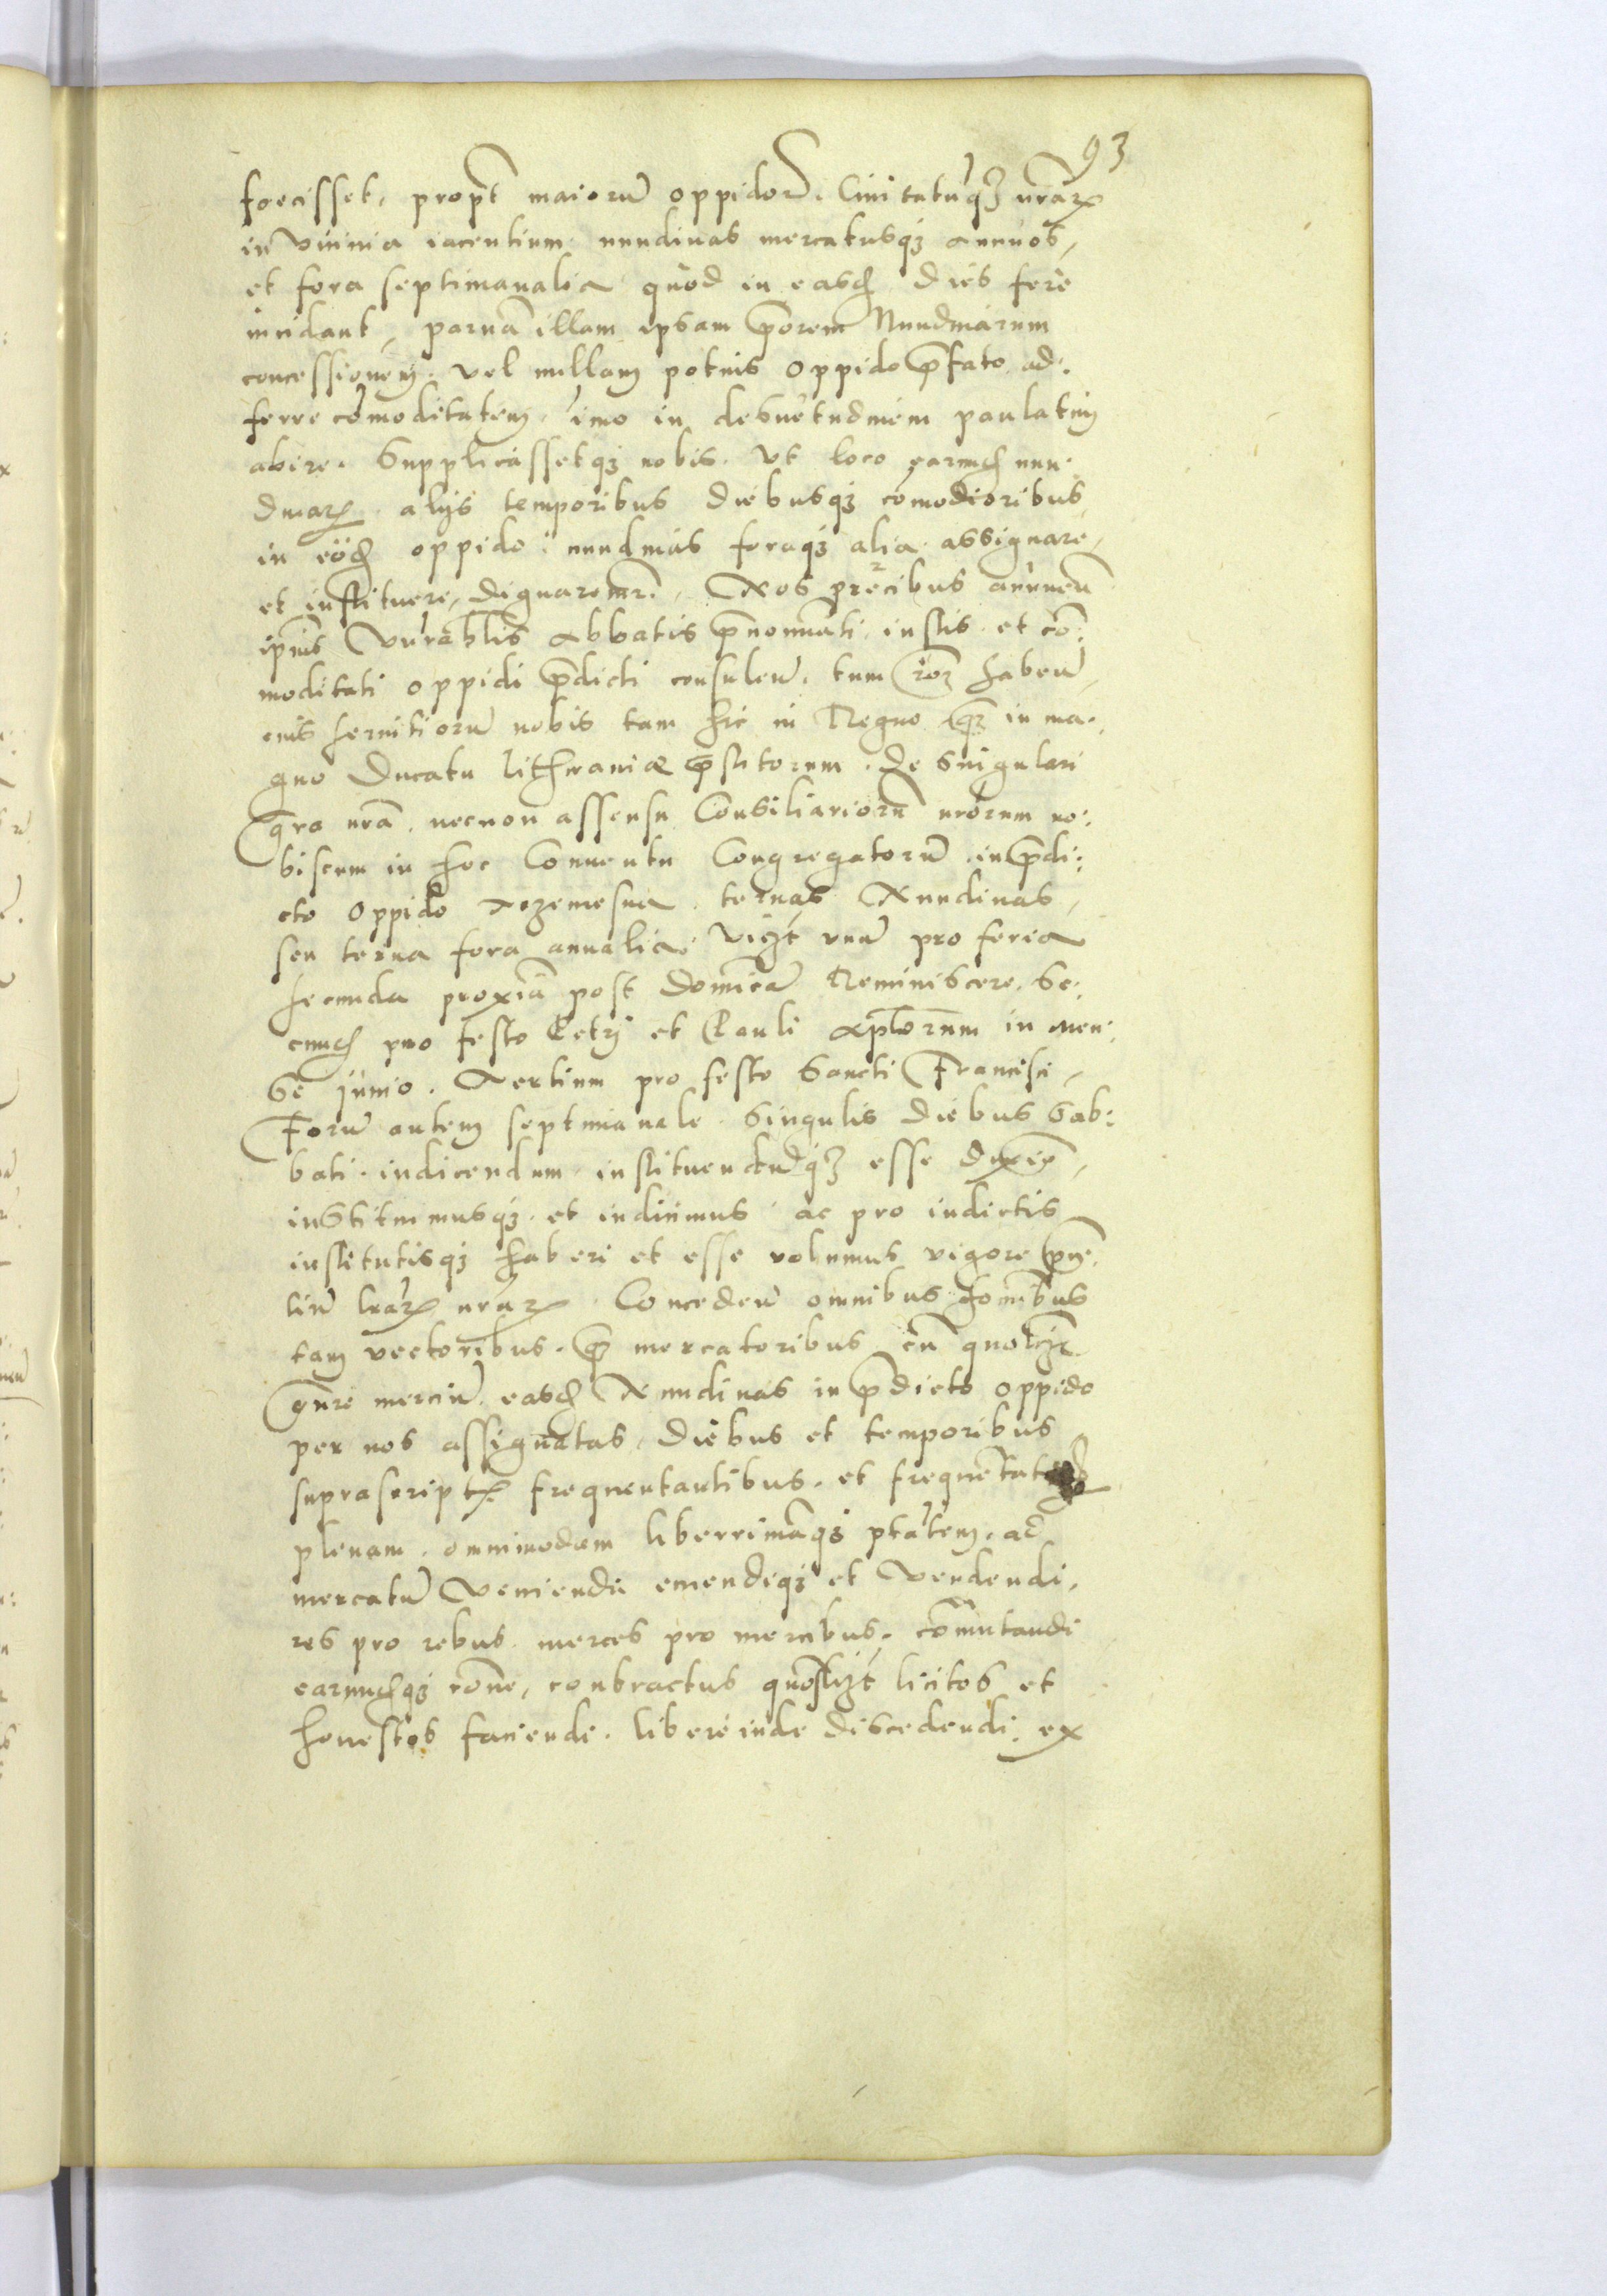 93
foecisset, propt maiorũ oppidorũ. Ciuitatũqꝫ nr̃aꝝ
in vicinia iacentium nundinas mercatusqꝫ annuos,
et fora septimanalia quod in easd dies fere
incidant, paruã illam ipsam p̃orem Nundinarum
concessionem. vel nullam potius oppido p̃fato ad:
ferre cõmoditatem. imo in desuetudinem paulatim
abire. Supplicassetqꝫ nobis. vt loco earund nun:
dinaꝝ alijs temporibus diebusqꝫ cõmodioribus,
in eod oppido: nundinas foraqꝫ alia assignare,
et instituere, dignaremr. Nos precibus annuen̄
ipius Vnrabilis Abbatis p̃nominati iustis et cõ:
moditati oppidi p̃dicti consulen̄. tum roẽ haben̄,
eius seruitiorũ nobis tam hic in Regno q̃ in ma:
gno Ducatu lithuaniæ p̃stitorum. de singulari
gra nrã. necnon assensu Consiliariorũ nrõrum no:
biscum in hoc Conuentu Congregatorũ. in p̃di:
cto oppido Trzemesna ternas Nundinas,
seu terna fora annalia. vizt vnũ pro feria
secunda proximã post dominicã Reminiscere. Se:
cund pro festo Petrj et Pauli Apl̃orum in Men:
se junio. Tertium pro festo Sancti Francisci,
Forũ autem septimanale singulis diebus Sab:
bati. indicendum. instituendũqꝫ esse duxim̃,
instituimusqꝫ et indicimus ac pro indictis
institutisqꝫ haberi et esse volumus vigore p̃n:
tiũ lrãꝝ nrãꝝ. Conceden̄ omnibus hominibus
tam vectoribus. q̃ mercatoribus cũ quolizt
gñre merciũ. easd Nundinas in p̃dicto oppido
per nos assignatas, diebus et temporibus
suprascriptꝭ frequentantibus. et frequẽtatur
plenam. omnimodam liberrimãqꝫ ptãtem. ad
mercatũ Veniendi emendiqꝫ et Vendendi,
res pro rebus. merces pro mercibus. cõmutandi
earundqꝫ rõne, contractus quoslizt licitos et
honestos faciendi. libere inde discedendi. ex